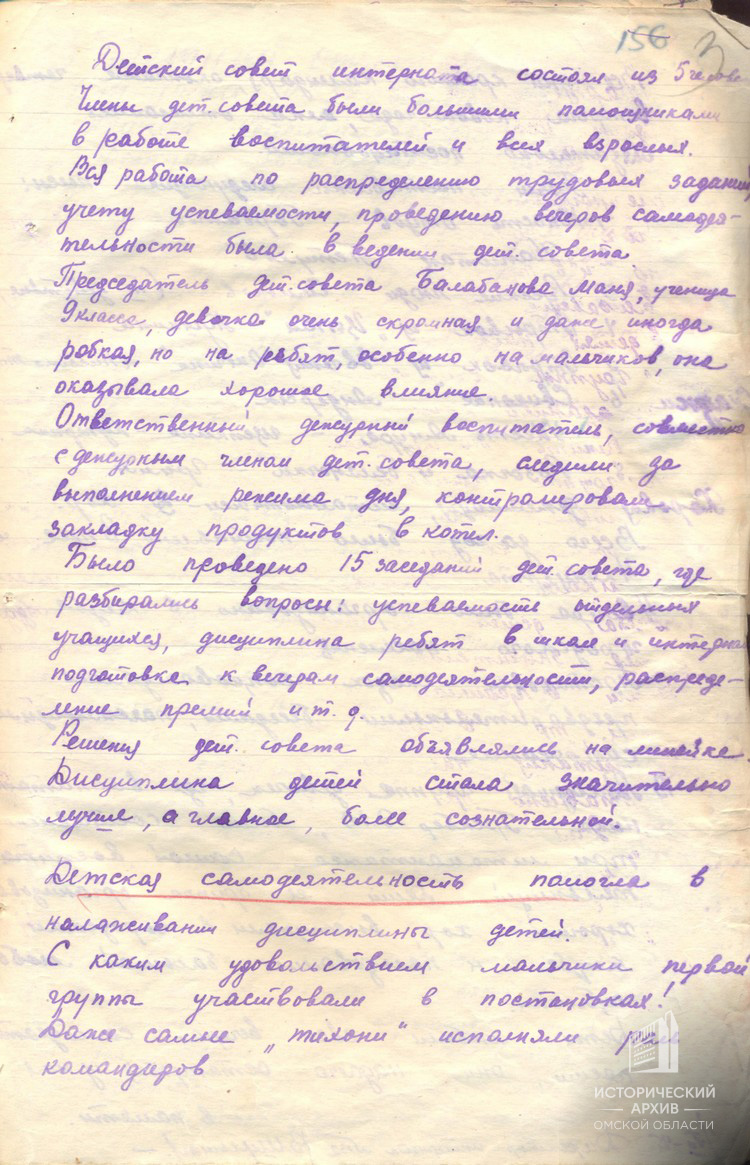 156
3
Детский совет интерната состоял из 5 челове
Члены дет. совета были большими помощниками
в работе воспитателей и всех взрослых.
Вся работа по распределению трудовых заданий,
учету успеваемости, проведению вечеров самодея-
тельности была в ведении дет. совета.
Председатель дет. совета Балабанова Маня, ученица
9 класса, девочка очень скромная и даже иногда
робкая, но на ребят, особенно на мальчиков, она
оказывала хорошее влияние.
Ответственный дежурный воспитатель, совместно
с дежурным членом дет. совета, следили за
выполнением режима дня, контролировали
закладку продуктов в котел.
Было проведено 15 заседаний дет. совета, где
разбирались вопросы: успеваемость отдельных
учащихся, дисциплина ребят в школе и интерна
подготовке к вечерам самодеятельности, распреде-
ление премий и т. д.
Решения дет. совета объявлялись на линейке.
Дисциплина детей стала значительно
лучше, а главное, более сознательной.
Детская самодеятельность помогла в
налаживании дисциплины детей.
С каким удовольствием мальчики первой
группы участвовали в постановках!
Даже самые „тихони" исполняли роль
командиров
ИСТОРИЧЕСКИЙ
АРХИВ
ОМСКОЙ ОБЛАСТИ